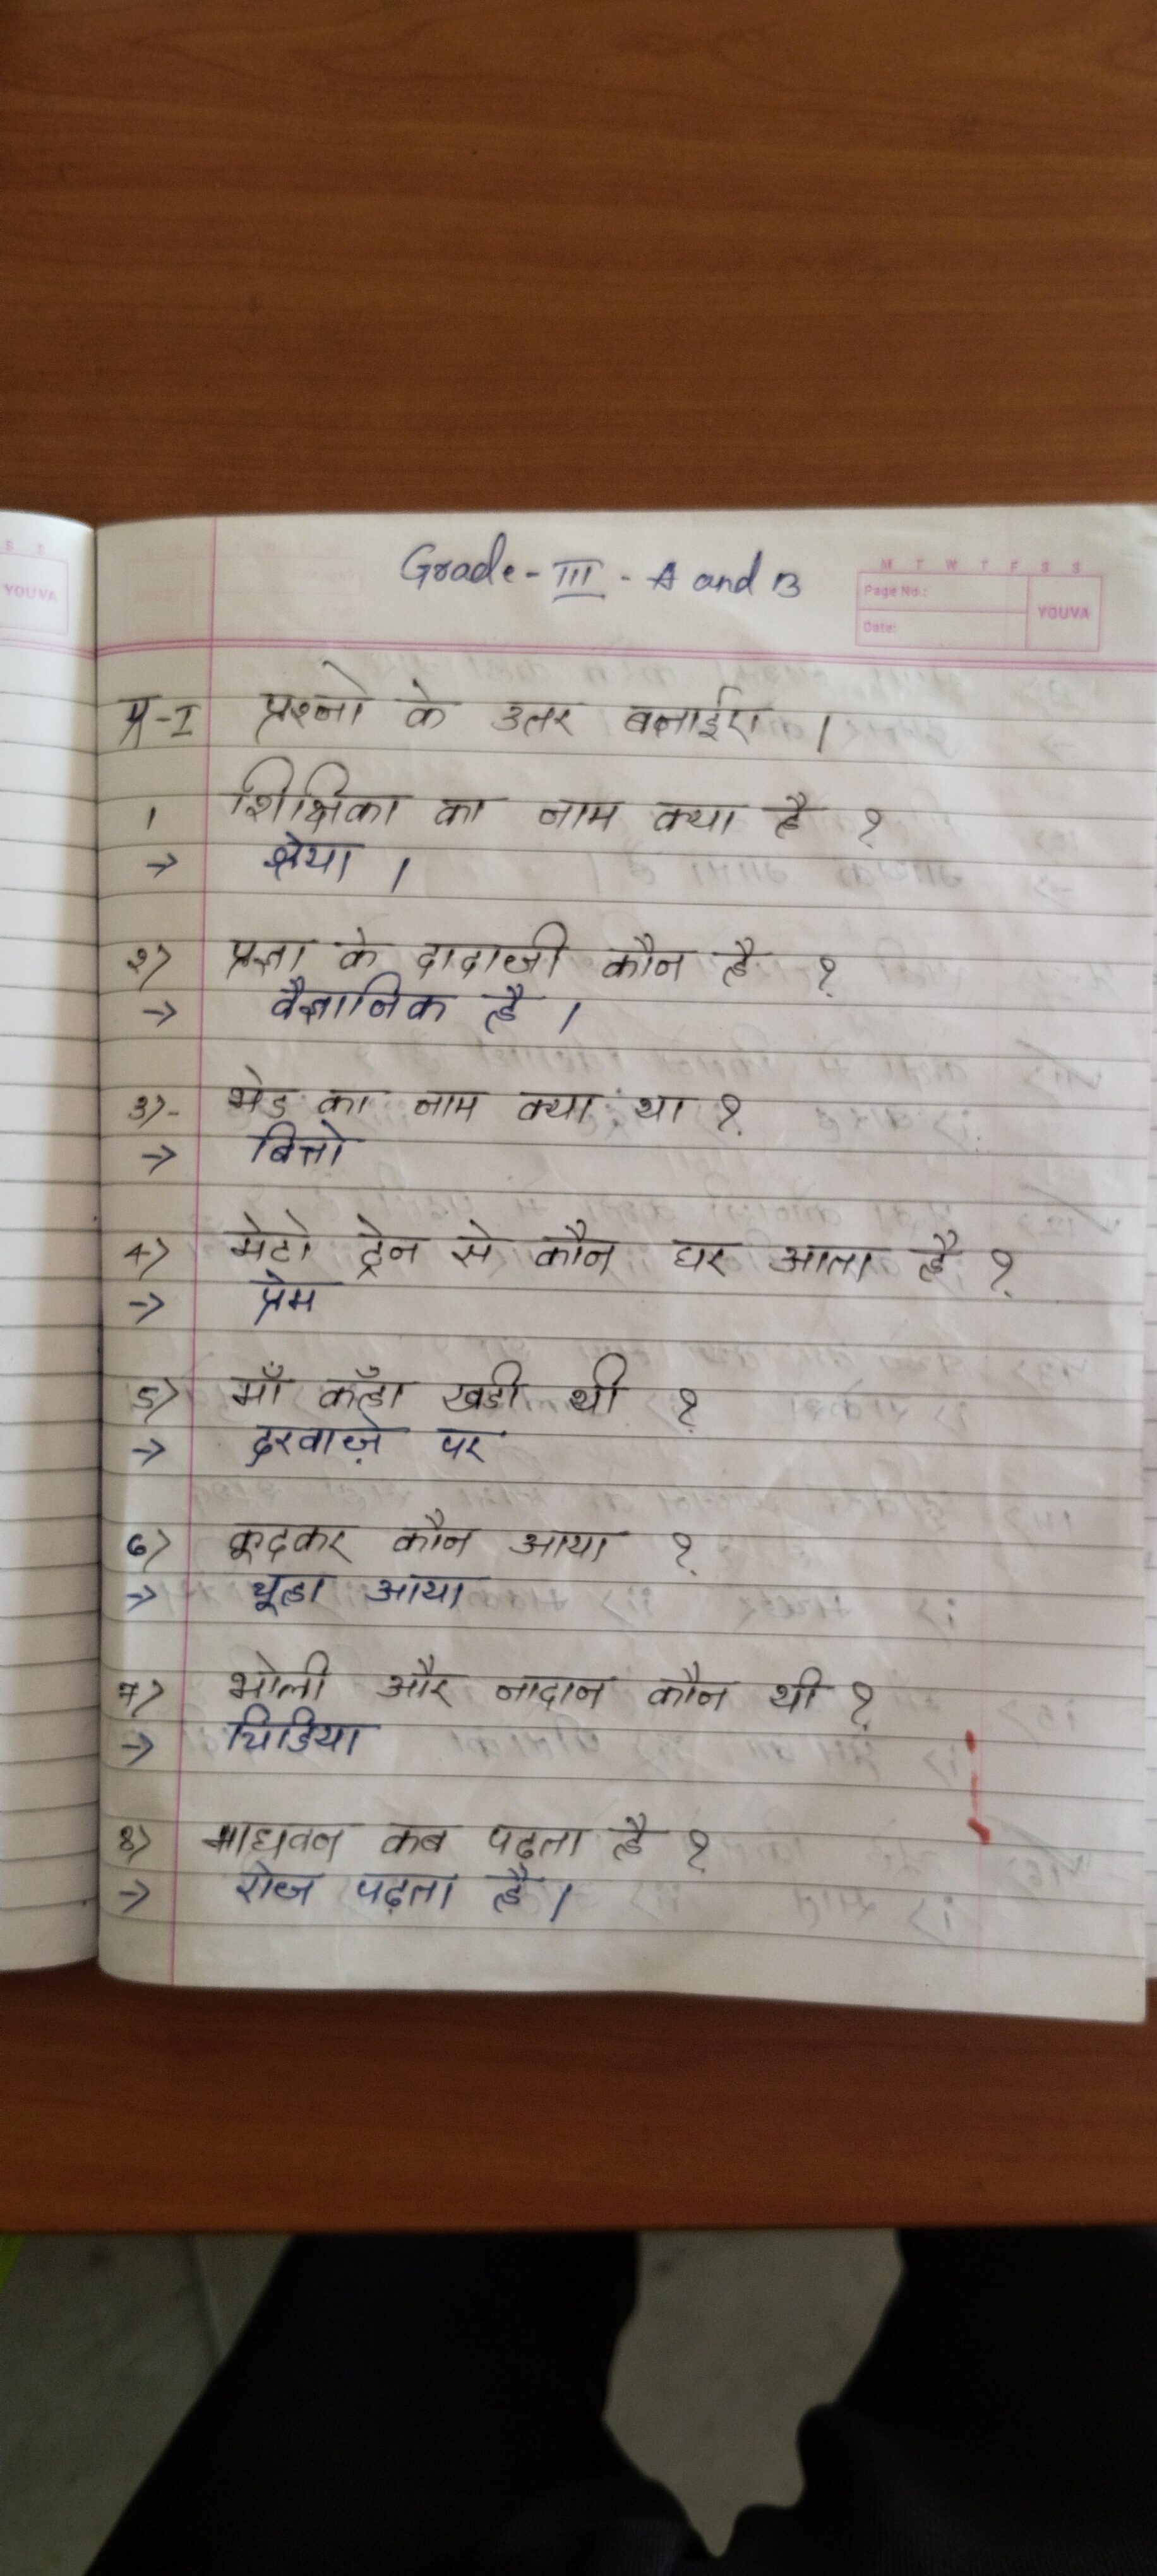 S S
YOUVA
Grade - III - A and B
M T W T F S S
Page No.:
YOUVA
Date:
प्र-I प्रश्नो के उतर बनाईए ।
1 शिक्षिका का नाम क्या है ?
→ श्रेया ।
२) प्रज्ञा के दादाजी कौन है ?
→ वैज्ञानिक है ।
3)- भेड का नाम क्या था ?
→ बित्तो
4) मेटो ट्रेन से कौन घर आता है ?
→ प्रेम
5) माँ कहाँ खडी थी ?
→ दरवाज़े पर
6) कूदकर कौन आया ?
→ चूहा आया
7) भोली और नादान कौन थी ?
→ चिडिया
8) माधवन कब पढ़ता है ?
→ रोज पढ़ता है ।